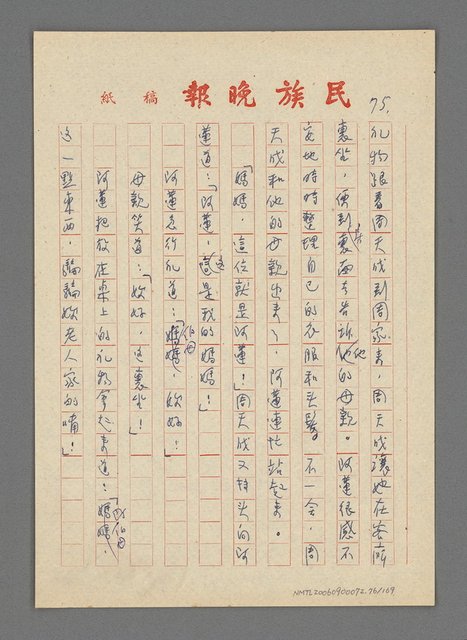 民族晚報 稿紙
75.
礼物跟着周天成到周家来，周天成讓她在客廳
裏坐，便到裏面去告訴他的母親。阿蓮很感不
安地時時整理自己的衣服和头髮。不一会，周
天成和他的母親出来了，阿蓮連忙站起来。
「媽媽，這位就是阿蓮！」周天成又轉头向阿
蓮道：「阿蓮，這是我的媽媽！」
阿蓮急行礼道：「伯母，妳好！」
母親笑道：「妳好，这裏坐！」
阿蓮把放在桌上的礼物拿起来道：「伯母，
这一點東西，騙騙妳老人家的嘴！」
NMTL20060900072.76/169